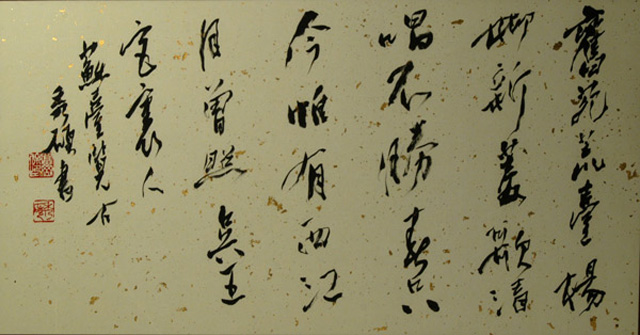 舊苑荒臺楊
柳新菱歌清
唱不勝春只
今惟有西江
月曾照吳王
宮裏人
蘇臺覽古
碩書